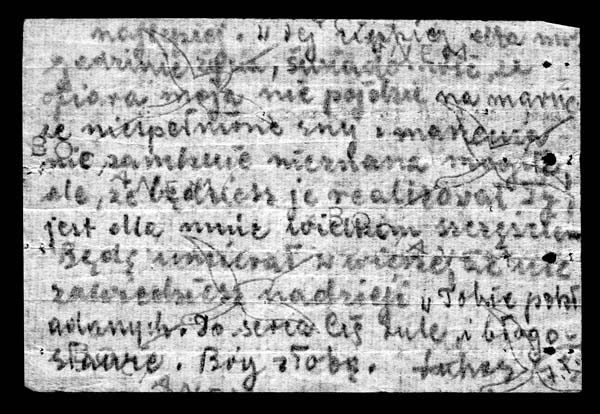 najlepiej. W tej ciężkiej dla mn
godzinie życia, świadomość, że
ofiara moja nie pójdzie na marne
że niespełnione sny i marzenia
nie zamknie nieznana mogiła,
ale, że będziesz je realizował Ty
jest dla mnie wielkim szczęściem
Będę umierał w wierze, że nie
zawiedziesz nadzieji w Tobie pokł
adanych. Do serca Cię tulę i błogo-
sławię. Bóg z Tobą.